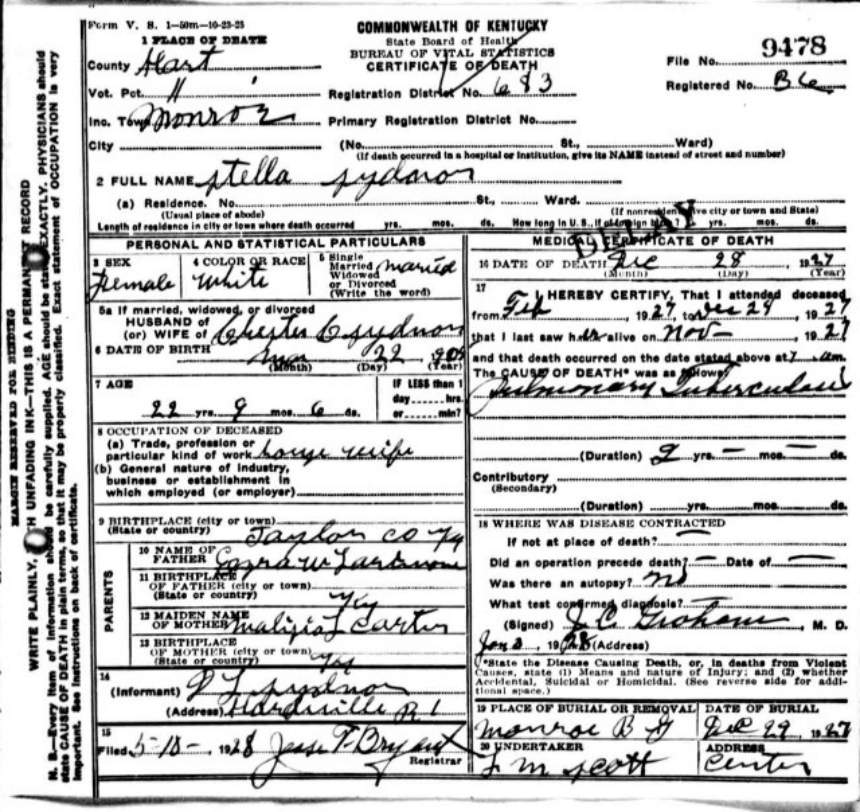 Form V. S. 1-50m-10-23-25
COMMONWEALTH OF KENTUCKY
State Board of Health
BUREAU OF VITAL STATISTICS
CERTIFICATE OF DEATH
File No. 9478
Registered No. B6
1 PLACE OF DEATH
County Hart
Vot. Pct. 11
Registration District No. 683
Inc. Town Monroe
Primary Registration District No.
City
(No. St., Ward)
(If death occurred in a hospital or institution, give its NAME instead of street and number)
2 FULL NAME Stella Sydnor
(a) Residence. No. St., Ward.
(Usual place of abode)
(If nonresident give city or town and State)
Length of residence in city or town where death occurred yrs. mos. ds. How long in U. S., if of foreign birth? yrs. mos. ds.
DELAY
PERSONAL AND STATISTICAL PARTICULARS
3 SEX
Female
4 COLOR OR RACE
White
5 Single
Married
Widowed
or Divorced
(Write the word)
Married
5a If married, widowed, or divorced
HUSBAND of
(or) WIFE of Chester C Sydnor
6 DATE OF BIRTH
Mar 22 1905
(Month) (Day) (Year)
7 AGE
22 yrs. 9 mos. 6 ds.
IF LESS than 1
day hrs.
or min?
8 OCCUPATION OF DECEASED
(a) Trade, profession or
particular kind of work house wife
(b) General nature of industry,
business or establishment in
which employed (or employer)
9 BIRTHPLACE (city or town)
(State or country) Taylor Co Ky
PARENTS
10 NAME OF
FATHER
11 BIRTHPLACE
OF FATHER (city or town)
(State or country) Ky
12 MAIDEN NAME
OF MOTHER Carter
13 BIRTHPLACE
OF MOTHER (city or town)
(State or country) Ky
14
(Informant) Sydnor
(Address) Hardyville R 1
15
Filed 5-18-, 1928 Jesse T. Bryant
Registrar
MEDICAL CERTIFICATE OF DEATH
16 DATE OF DEATH Dec 28 1927
(Month) (Day) (Year)
17
I HEREBY CERTIFY, That I attended deceased
from Feb, 1927, to Dec 29, 1927
that I last saw her alive on Nov- 1927
and that death occurred on the date stated above at 7 am.
The CAUSE OF DEATH* was as follows:
Pulmonary Tuberculosis
(Duration) 2 yrs. - mos. - ds.
Contributory
(Secondary)
(Duration) yrs. mos. ds.
18 WHERE WAS DISEASE CONTRACTED
If not at place of death? -
Did an operation precede death? - Date of -
Was there an autopsy? no
What test confirmed diagnosis? -
(Signed) J C Graham, M. D.
Jan 2, 1928 (Address)
*State the Disease Causing Death, or, in deaths from Violent
Causes, state (1) Means and nature of Injury; and (2) whether
Accidental, Suicidal or Homicidal. (See reverse side for addi-
tional space.)
19 PLACE OF BURIAL OR REMOVAL
Monroe B G
DATE OF BURIAL
Dec 29, 1927
20 UNDERTAKER
J M Scott
ADDRESS
Center
MARGIN RESERVED FOR BINDING
WRITE PLAINLY, WITH UNFADING INK—THIS IS A PERMANENT RECORD
N. B.—Every item of information should be carefully supplied. AGE should be stated EXACTLY. PHYSICIANS should
state CAUSE OF DEATH in plain terms, so that it may be properly classified. Exact statement of OCCUPATION is very
important. See instructions on back of certificate.